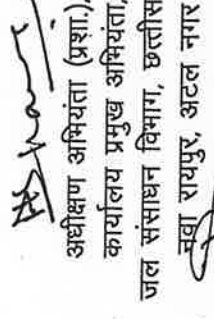 अधीक्षण अभियंता (प्रशा.),
कार्यालय प्रमुख अभियंता,
जल संसाधन विभाग, छत्तीस
नवा रायपुर, अटल नगर